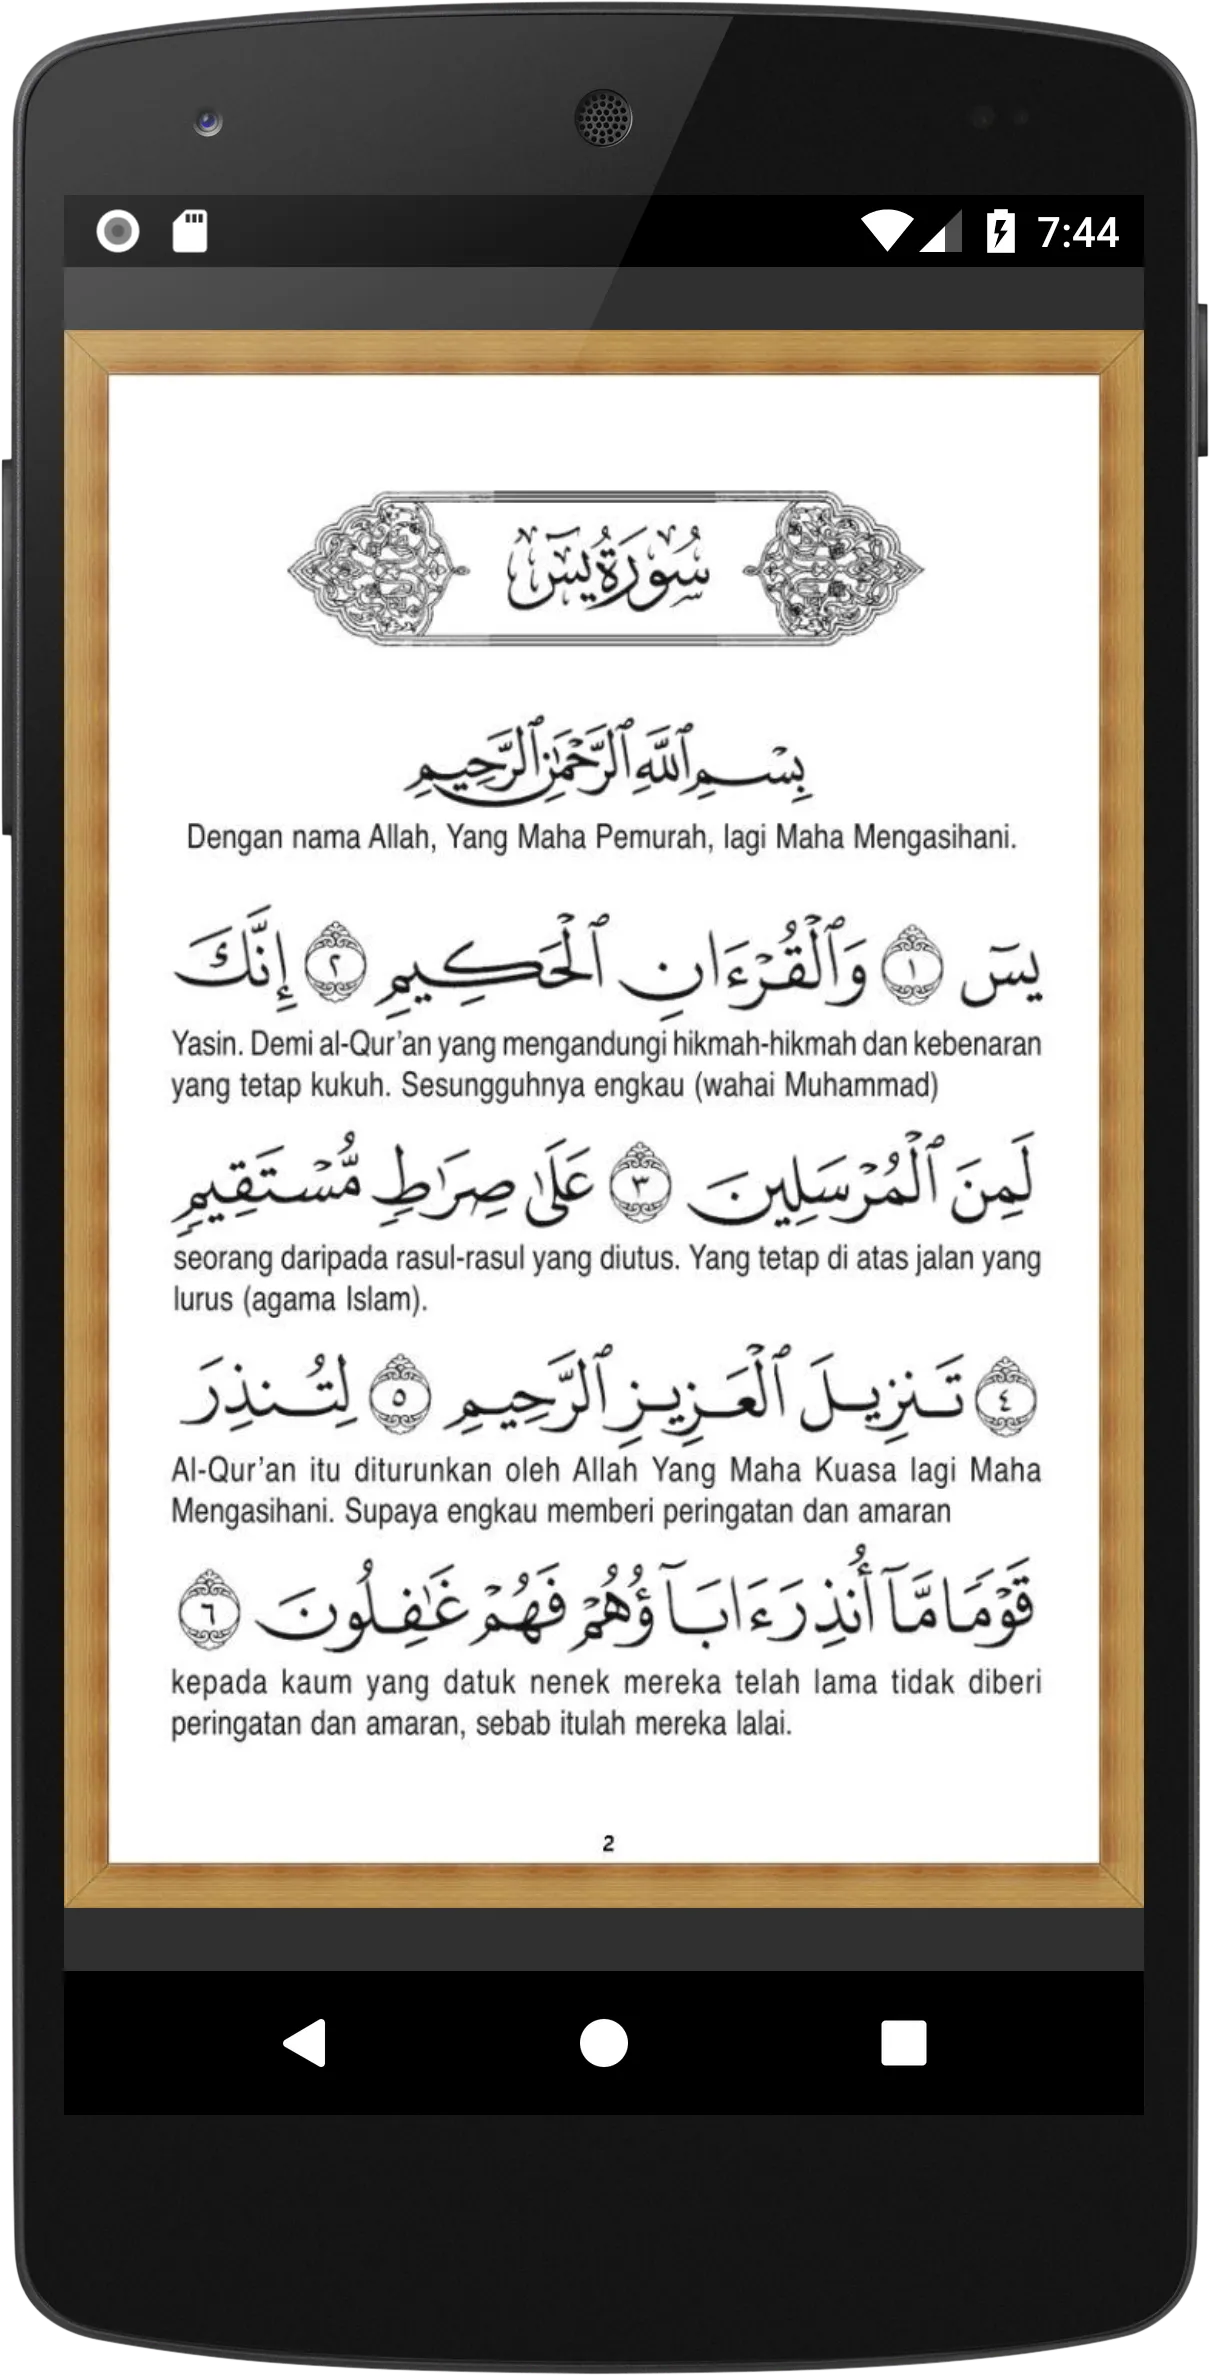 7:44
سُورَةُ يسٓ
بِسْمِ ٱللَّهِ ٱلرَّحْمَٰنِ ٱلرَّحِيمِ
Dengan nama Allah, Yang Maha Pemurah, lagi Maha Mengasihani.
يسٓ ١ وَٱلْقُرْءَانِ ٱلْحَكِيمِ ٢ إِنَّكَ
Yasin. Demi al-Qur’an yang mengandungi hikmah-hikmah dan kebenaran
yang tetap kukuh. Sesungguhnya engkau (wahai Muhammad)
لَمِنَ ٱلْمُرْسَلِينَ ٣ عَلَىٰ صِرَٰطٍ مُّسْتَقِيمٍ
seorang daripada rasul-rasul yang diutus. Yang tetap di atas jalan yang
lurus (agama Islam).
٤ تَنزِيلَ ٱلْعَزِيزِ ٱلرَّحِيمِ ٥ لِتُنذِرَ
Al-Qur’an itu diturunkan oleh Allah Yang Maha Kuasa lagi Maha
Mengasihani. Supaya engkau memberi peringatan dan amaran
قَوْمًا مَّآ أُنذِرَ ءَابَآؤُهُمْ فَهُمْ غَٰفِلُونَ ٦
kepada kaum yang datuk nenek mereka telah lama tidak diberi
peringatan dan amaran, sebab itulah mereka lalai.
2